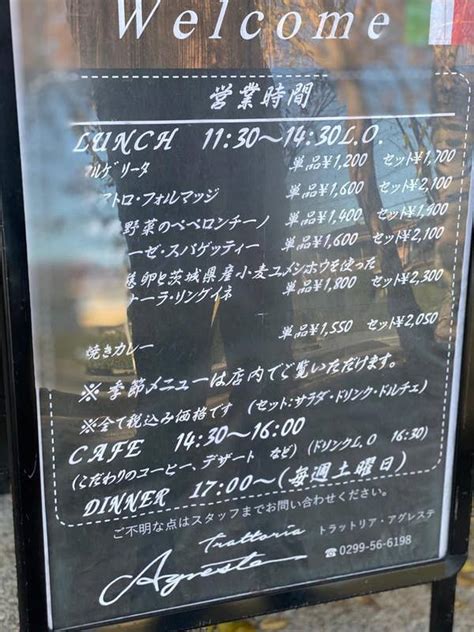 Welcome
営業時間
LUNCH 11:30～14:30L.O.
ルゲリータ 単品¥1,200 セット¥1,700
アトロ・フォルマッジ 単品¥1,600 セット¥2,100
野菜のペペロンチーノ 単品¥1,400 セット¥1,900
ーゼ・スパゲッティー 単品¥1,600 セット¥2,100
卵と茨城県産小麦ユメシホウを使った
ナーラ・リングイネ 単品¥1,800 セット¥2,300
焼きカレー 単品¥1,550 セット¥2,050
※季節メニューは店内でご覧いただけます。
※全て税込み価格です (セット:サラダ・ドリンク・ドルチェ)
CAFE 14:30～16:00
(こだわりのコーヒー、デザート など) (ドリンクL.O 16:30)
DINNER 17:00～(毎週土曜日)
ご不明な点はスタッフまでお問い合わせください。
Trattoria トラットリア・アグレステ
Agreste ☎0299-56-6198